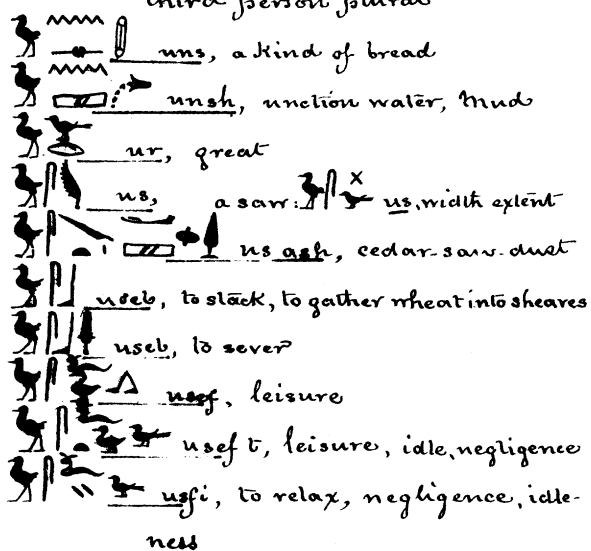 third person plural
uns, a kind of bread
unsh, unction water, Mud
ur, great
us, a saw: us, width extent
us ash, cedar-saw-dust
useb, to slack, to gather wheat into sheaves
useb, to sever
usef, leisure
usef t, leisure, idle, negligence
usfi, to relax, negligence, idle-
ness